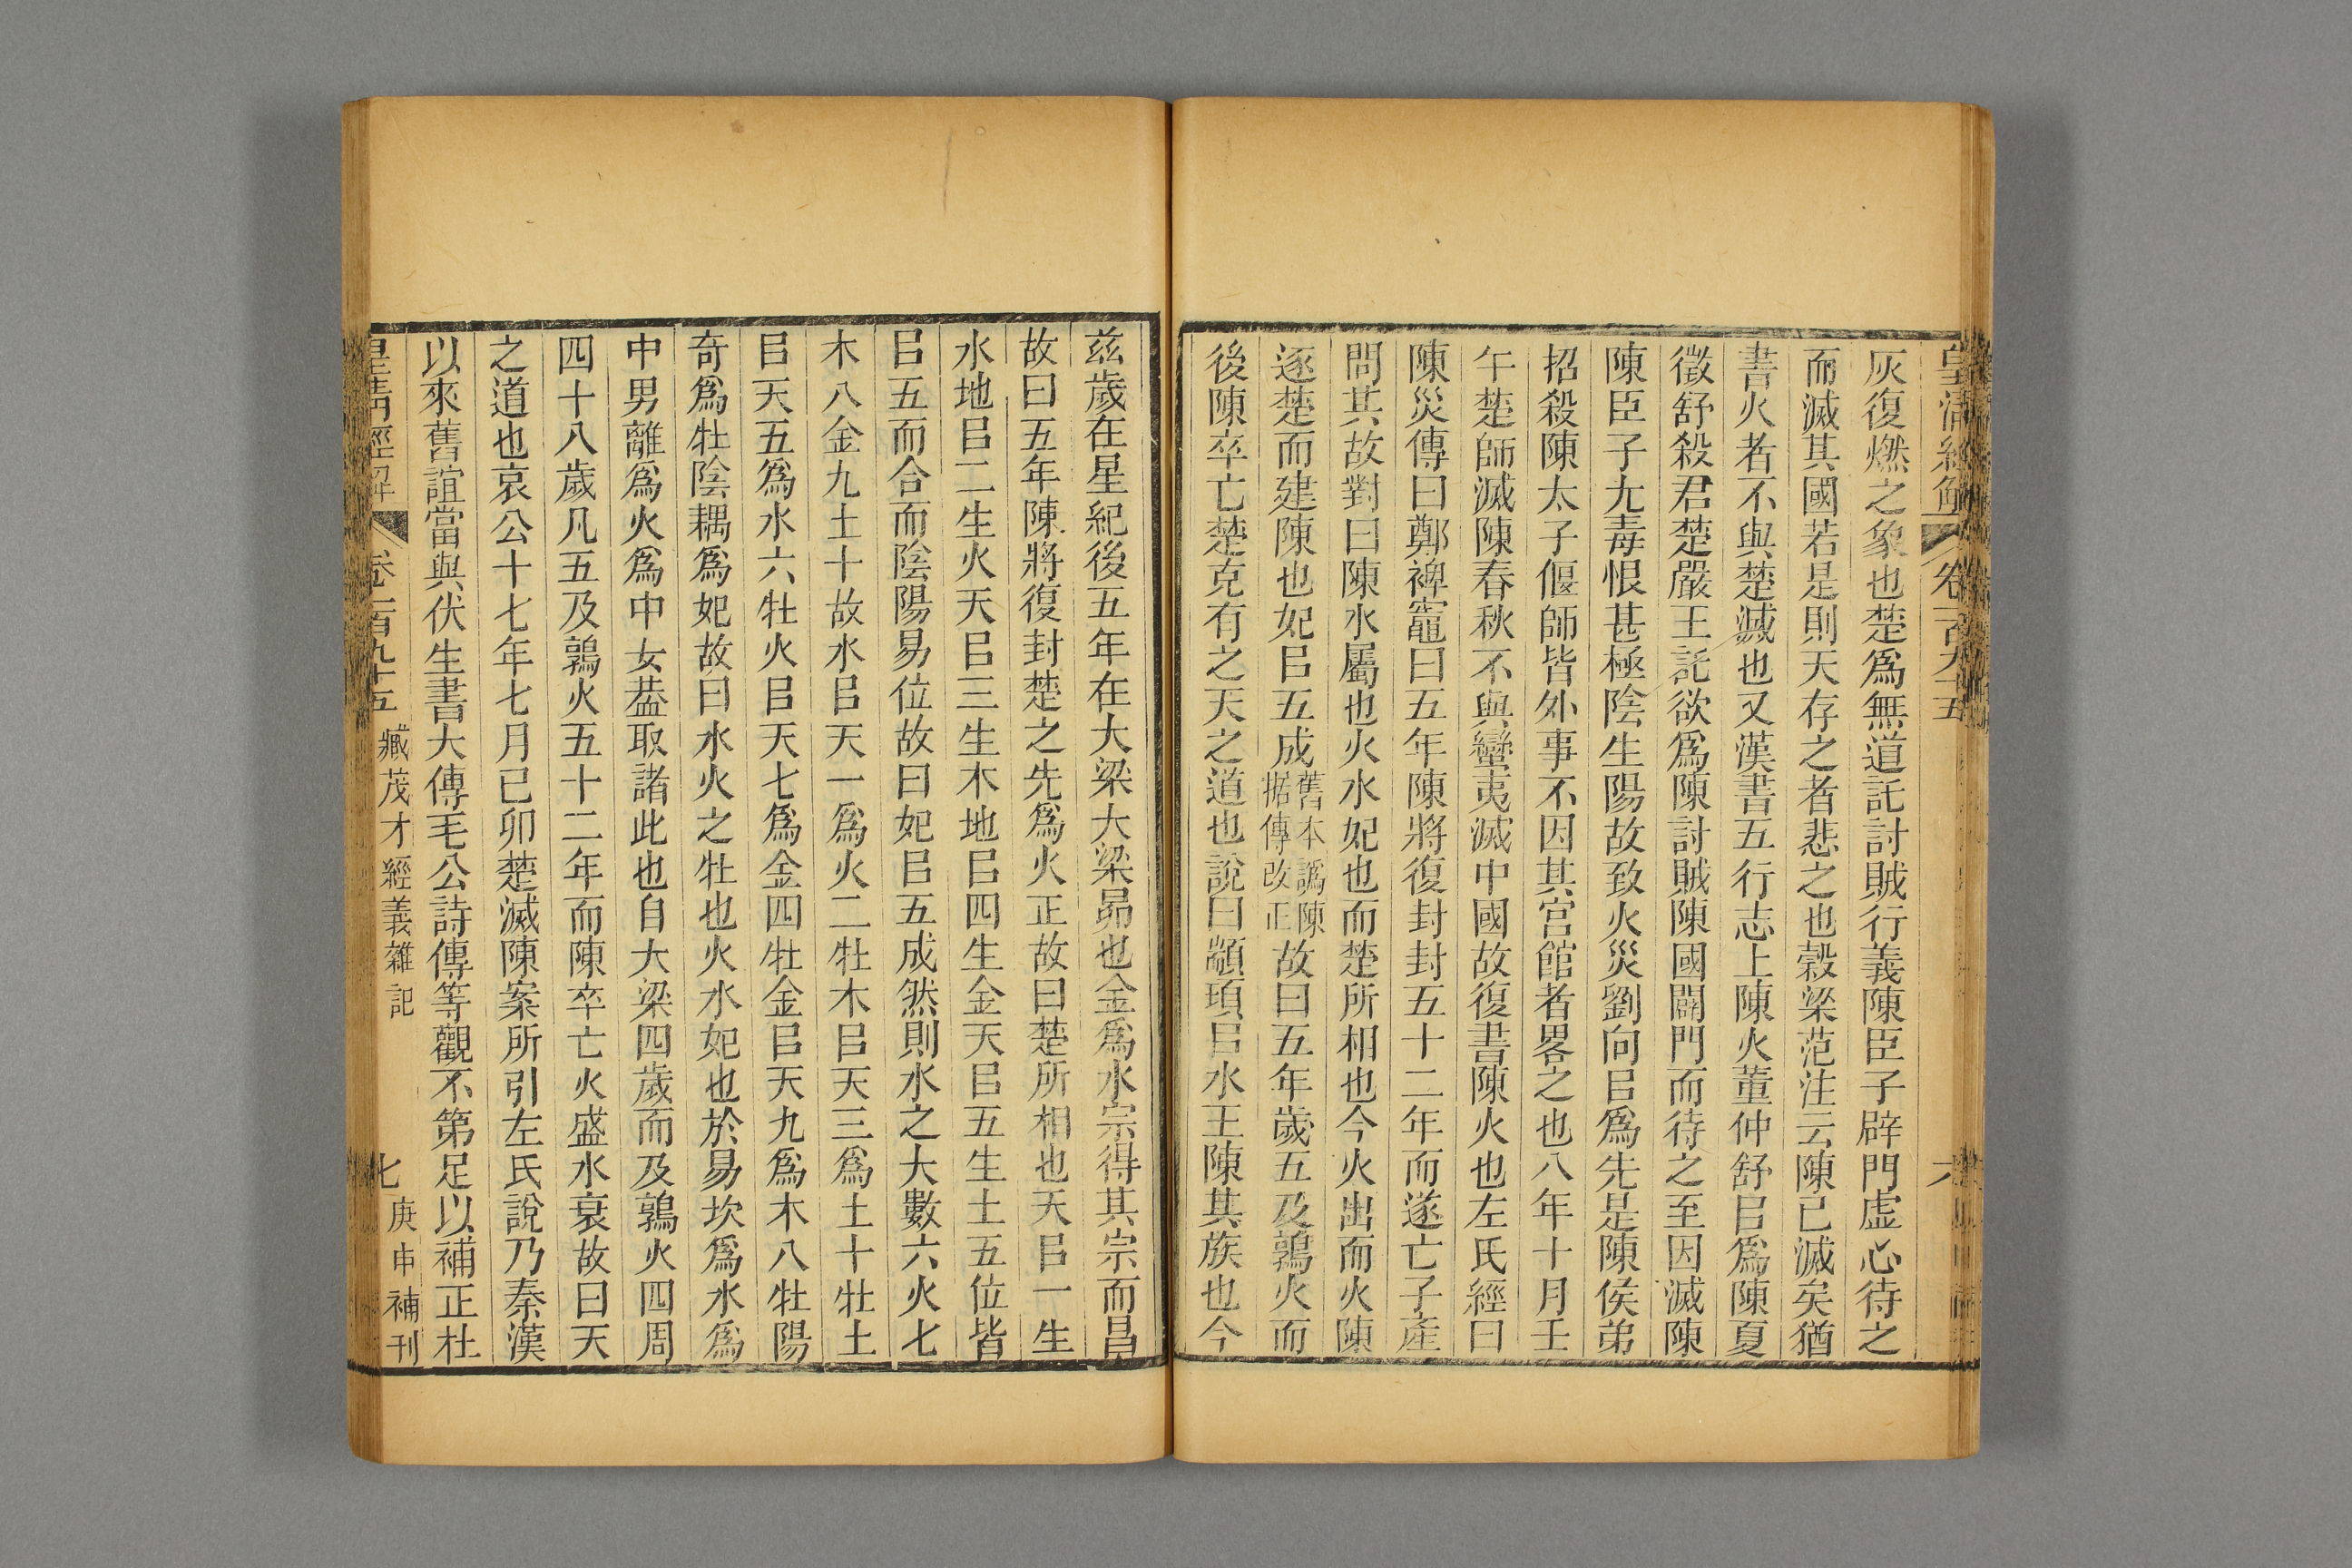 皇清經解 卷一百九十五 六
灰復燃之象也楚爲無道託討賊行義陳臣子辟門虛心待之
而滅其國若是則天存之者悲之也穀梁范注云陳已滅矣猶
書火者不與楚滅也又漢書五行志上陳火董仲舒㠯爲陳夏
徵舒殺君楚嚴王託欲爲陳討賊陳國闢門而待之至因滅陳
陳臣子尢毒恨甚極陰生陽故致火災劉向㠯爲先是陳侯弟
招殺陳太子偃師皆外事不因其宫館者畧之也八年十月壬
午楚師滅陳春秋不與蠻夷滅中國故復書陳火也左氏經曰
陳災傳曰鄭裨竈曰五年陳將復封封五十二年而遂亡子產
問其故對曰陳水屬也火水妃也而楚所相也今火出而火陳
逐楚而建陳也妃㠯五成舊本譌陳据傳改正故曰五年歲五及鶉火而
後陳卒亡楚克有之天之道也說曰顓頊㠯水王陳其族也今
兹歲在星紀後五年在大梁大梁昴也金爲水宗得其宗而昌
故曰五年陳將復封楚之先爲火正故曰楚所相也天㠯一生
水地㠯二生火天㠯三生木地㠯四生金天㠯五生土五位皆
㠯五而合而陰陽易位故曰妃㠯五成然則水之大數六火七
木八金九土十故水㠯天一爲火二牡木㠯天三爲土十牡土
㠯天五爲水六牡火㠯天七爲金四牡金㠯天九爲木八牡陽
奇爲牡陰耦爲妃故曰水火之牡也火水妃也於易坎爲水爲
中男離爲火爲中女葢取諸此也自大梁四歲而及鶉火四周
四十八歲凡五及鶉火五十二年而陳卒亡火盛水衰故曰天
之道也哀公十七年七月已卯楚滅陳案所引左氏說乃秦漢
以來舊誼當與伏生書大傳毛公詩傳等觀不第足以補正杜
皇清經解 卷一百九十五 臧茂才經義雜記 七 庚申補刊